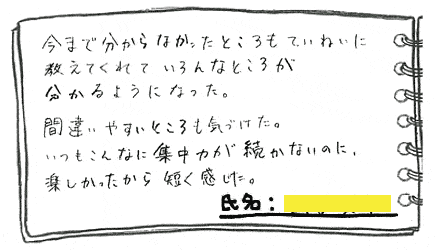 今まで分からなかったところもていねいに
教えてくれて いろんなところが
分かるようになった。
間違いやすいところも気づけた。
いつもこんなに集中力が続かないのに、
楽しかったから 短く感じた。
氏名：